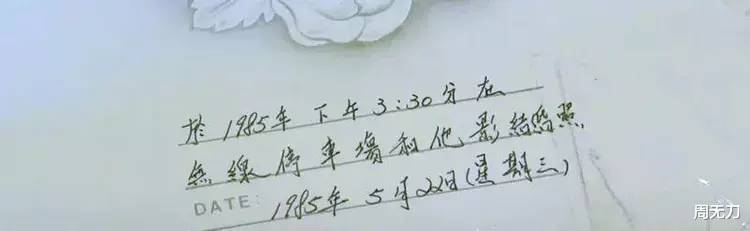 於1985年下午3:30分在
無線停車場和他影結婚照
DATE: 1985年5月22日(星期三)
周无刀